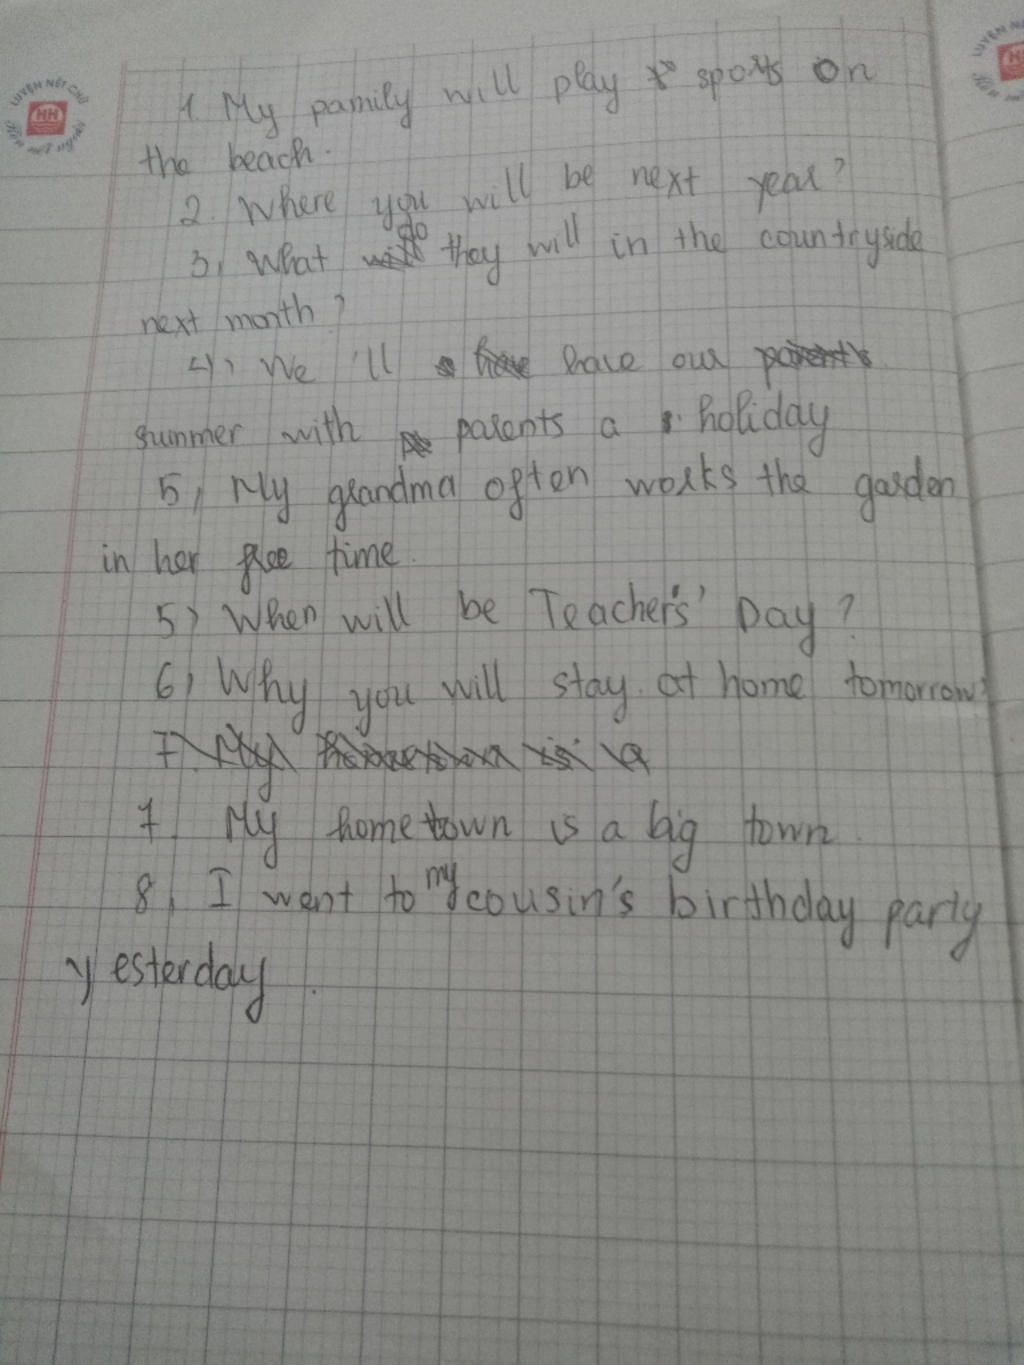 LUYỆN NÉT CHỮ
HH
Rèn nết người
LUYỆN
1. My pamily will play sports on
the beach.
2. Where you will be next year?
do
3, What they will in the countryside
next month?
4), We 'll have our
summer with parents a holiday
5, My grandma often works the garden
in her free time.
5) When will be Teacher's' Day?
6) Why you will stay at home tomorrow?
7 My hometown is a big town
8, I went to my cousin's birthday party
yesterday.